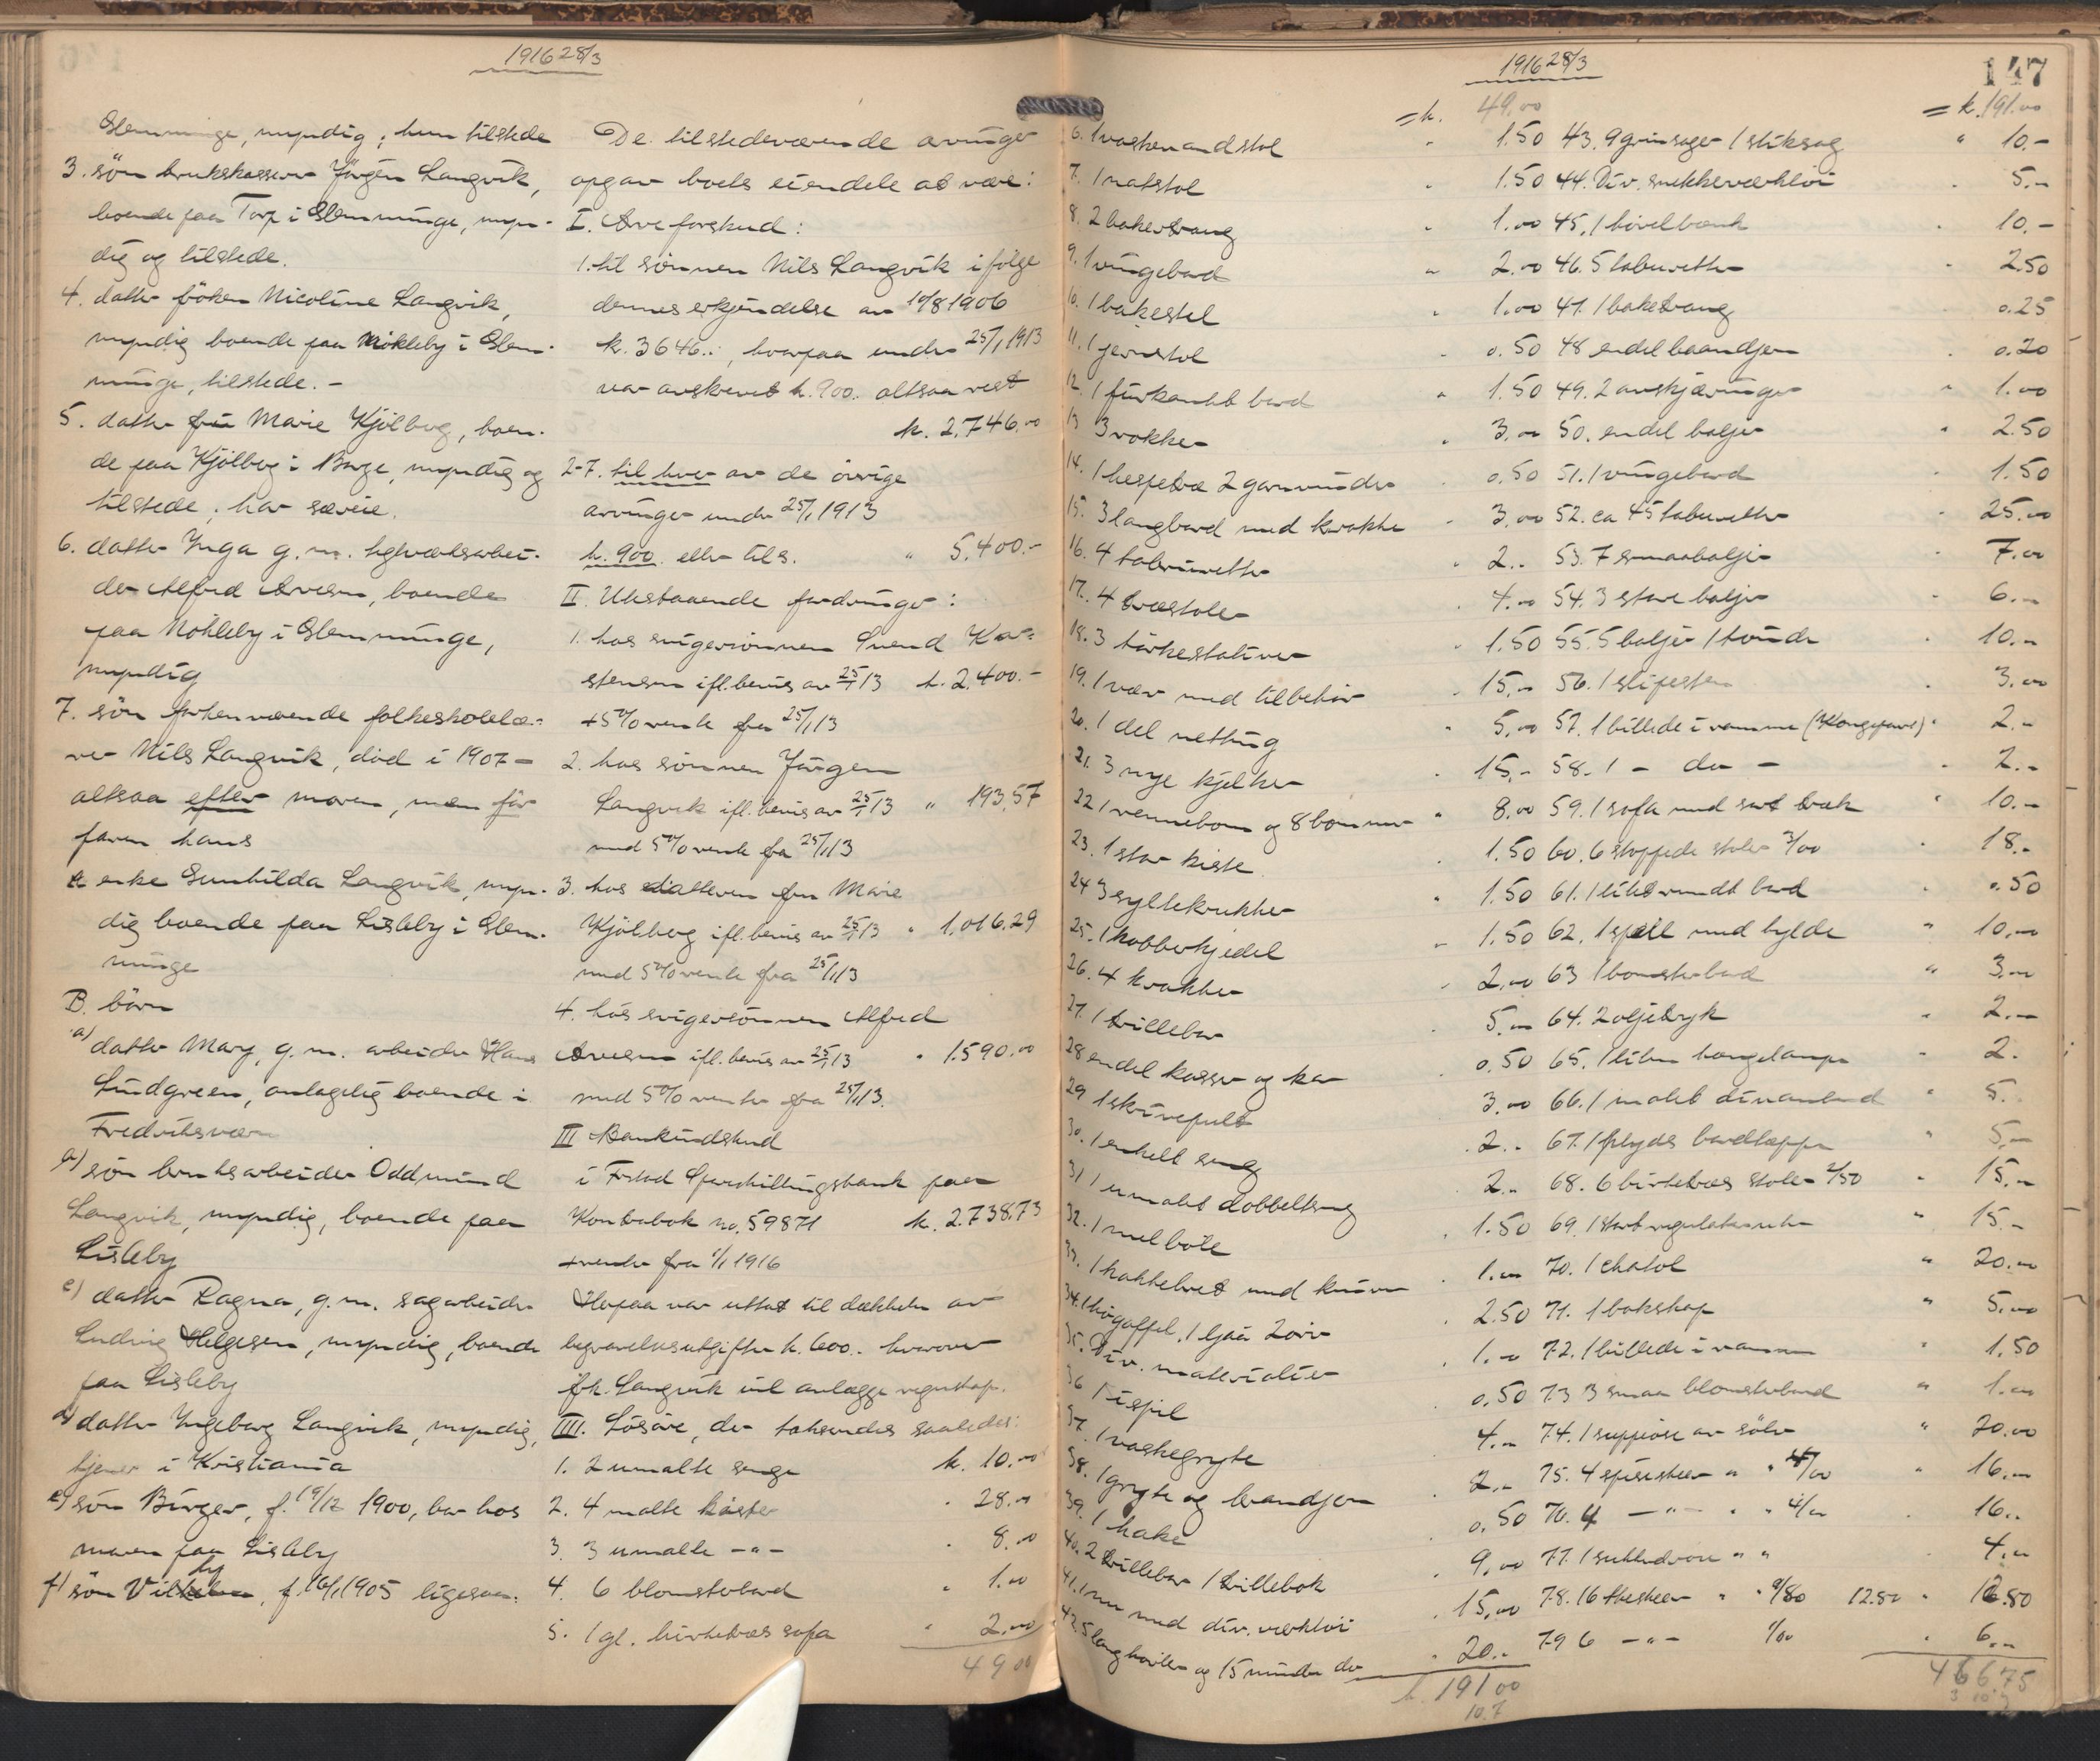 1916 28/3
Glemminge, myndig; hun tilstede
3. søn brukskasserer Jörgen Langvik,
boende paa Torp i Glemminge, myn-
dig og tilstede.
4. datter fröken Nicoline Langvik,
myndig boende paa Mökleby i Glem-
minge, tilstede. -
5. datter fru Marie Kjölberg, boen-
de paa Kjölberg i Borge, myndig og
tilstede; har særeie.
6. datter Inga g.m. høvleriarbei-
der Alfred Arvesen, boende
paa Mökleby i Glemminge,
myndig
7. sön forhenværende folkeskolelæ-
rer Nils Langvik, död i 1907 -
altsaa efter moren, men för
faren hans
A. enke Gunhilda Langvik, myn-
dig boende paa Lisleby i Glem-
minge
B. börn
a) datter Mary, g.m. arbeider Hans
Lindgreen, antagelig boende i
Fredriksværn
b) sön bruksarbeider Oddmund
Langvik, myndig, boende paa
Lisleby
c) datter Ragna, g.m. sagarbeider
Ludvig Helgesen, myndig, boende
paa Lisleby
d) datter Ingeborg Langvik, myndig,
tjener i Kristiania
e) sön Birger, f. 19/12 1900, bor hos
moren paa Lisleby
f) sön , f. 16/1 1905 ligesaa.
De tilstedeværende arvinger
opgav boets eiendele at være:
I. Arveforskud:
1. til sönnen Nils Langvik ifölge
dennes erkjendelse av 10/8 1906
k. 3646.-, hvorpaa under 25/1 1913
var avskrevet k. 900. altsaa rest
k. 2.746.00
2-7. til hver av de övrige
arvinger under 25/1 1913
k. 900. eller tils. " 5.400.-
II. Utestaaende fordringer:
1. hos svigersönnen Svend Kar-
stensen ifl. bevis av 25/1 13 k. 2.400.-
+ 5% rente fra 25/1 13
2. hos sönnen Jörgen
Langvik ifl. bevis av 25/1 13 " 193,57
med 5% rente fra 25/1 13
3. hos datteren fru Marie
Kjölberg ifl. bevis av 25/1 13 " 1.016.29
med 5% rente fra 25/1 13
4. hos svigersönnen Alfred
Arvesen ifl. bevis av 25/1 13 " 1.590.00
med 5% rente fra 25/1 13.
III Bankindskud
i F.stad Spareskillingsbank paa
Kontrabok no. 59871 k. 2.738.73
+ renter fra 1/1 1916
Herpaa var uttat til dækkelse av
begravelsesutgifter k. 600.- hvorover
frk. Langvik vil avlægge regnskap.
IIII. Lösöre, der takseredes saaledes:
1. 2 umalte senge k. 10.00
2. 4 malte kister " 28.00
3. 3 umalte -"- " 8.00
4. 6 blomsterbord " 1.00
5. 1 gl. birketræs sofa " 2.00
49 00
1916 28/3
147
= k. 49.00
6. 1 vaskevandstol " 1.50
7. 1 natstol " 1.50
8. 2 baketraug " 1.00
9. 1 vingebord " 2.00
10. 1 bakestel " 1.00
11. 1 jernstol " 0.50
12. 1 firkantet bord " 1.50
13 3 rokker " 3.00
14. 1 hespetræ 2 garnvinder " 0.50
15. 3 langbord med krakker " 3.00
16. 4 taburetter " 2..
17. 4 træstoler " 4.00
18. 3 törkestativer " 1.50
19. 1 væv med tilbehör " 15.-
20. 1 del netting " 5.00
21. 3 nye kjelker " 15.-
22 1 rennebom og 8 bommer " 8.00
23. 1 stor kiste " 1.50
24 3 syltekrukker " 1.50
25. 1 kobberkjedel " 1.50
26. 4 krakker " 2.00
27. 1 trillebør " 5.-
28 endel kasser og kar " 0.50
29 1 skrivepult " 3.00
30. 1 enkelt seng " 2..
31 1 umalet dobbeltseng " 2..
32. 1 melböle " 1.50
33. 1 hakkebret med kniver " 1.00
34. 1 høgaffel, 1 ljaa 2 river " 2.50
35. Div. materialier " 1.-
36 1 ispil " 0.50
37. 1 vaskegryte " 4.-
38. 1 gryte og brandjern " 2.-
39. 1 hake " 0.50
40. 2 trillebør 1 trillebok " 9.00
41. 1 med div. verktöi " 15.00
42. 5 langhövler og 15 mindre do " 20.-
k. 191 00
10.7
= k. 191.00
43. 9 grinsager 1 stiksag " 10.-
44. Div. snekkerværktöi " 5.-
45. 1 hövelbænk " 10.-
46. 5 taburetter " 2.50
47. 1 baketraug " 0.25
48 endel baandjern " 0.20
49. 2 avskjæringer " 1.00
50. endel baljer " 2.50
51. 1 vingebord " 1.50
52. ca 45 taburetter " 25.00
53. 7 smaabaljer " 7.00
54. 3 store baljer " 6.-
55. 5 baljer 1 tönde " 10.-
56. 1 slipesten " 3.00
57. 1 billede i ramme (Kongeparret) " 2.-
58. 1 - do - " 2.-
59. 1 sofa med sort træk " 10.-
60. 6 stoppede stoler 3/00 " 18.-
61. 1 litet rundt bord " 0.50
62. 1 speil med hylde " 10.00
63 1 blomsterbord " 3.00
64. 2 oljetryk " 2.-
65. 1 liten hængelampe " 2.
66. 1 malet divanbord " 5.
67. 1 plydses bordteppe " 5.-
68. 6 birketræs stoler 2/50 " 15.-
69. 1 stort regulatorur " 15.-
70. 1 chatol " 20.00
71. 1 bokskap " 5.00
72. 1 billede i ramme " 1.50
73 3 smaa blomsterbord " 1.00
74. 1 suppeøse av sölv " 20.00
75. 4 spiseskeer " " 4/00 " 16.-
76. 4 -"- " " 4/00 " 16..
77. 1 " " 4.-
78. 16 theskeer " " 0/80 12.80 " 12.80
79 6 -"- 1/00 " 6.-
466.75